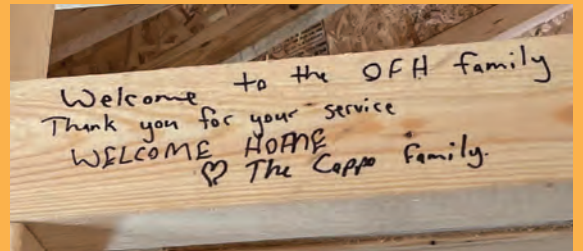 Welcome to the OFH family
Thank you for your service
WELCOME HOME
♡ The Cappo Family.